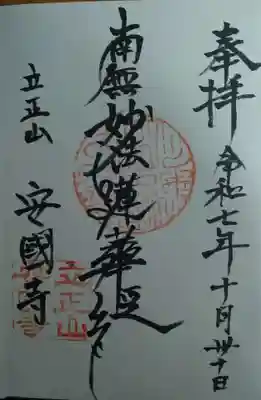 奉拝 令和七年十月卅日
南無妙法蓮華経
立正山 安國寺
立正山